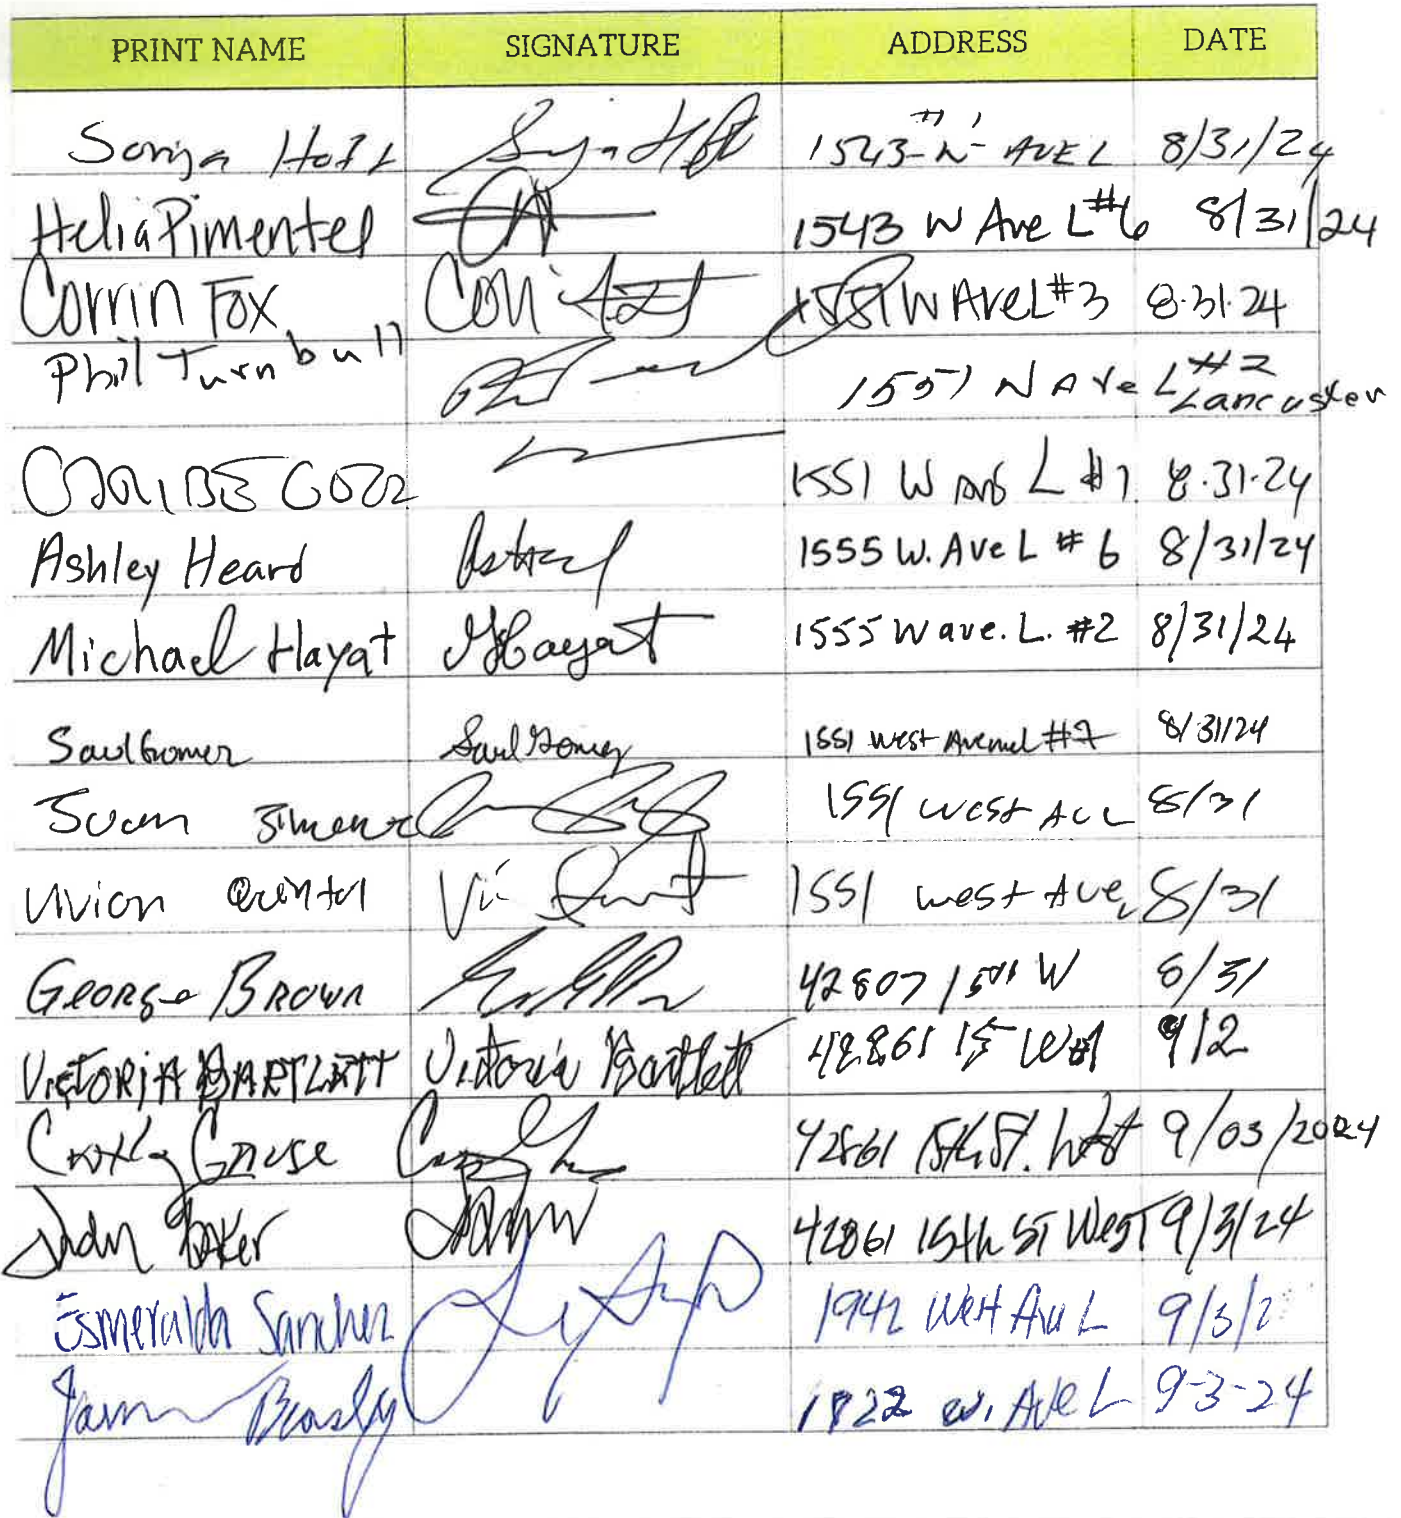 PRINT NAME SIGNATURE ADDRESS DATE
#1
Sonja Holt 1543 W AVE L 8/31/24
Helia Pimentel 1543 W Ave L #6 8/31/24
Corrin Fox 1551 W Ave L #3 8.31.24
Phil Turnbull 1551 W Ave L #2
Lancaster
1551 W Ave L #1 8.31.24
Ashley Heard 1555 W. Ave L #6 8/31/24
Michael Hayat MHayat 1555 W ave. L. #2 8/31/24
Saul Gomez Saul Gomez 1551 West Avenue L #7 8/31/24
Juan Jimenez 1551 West Ave L 8/31
Vivian Quintal 1551 West Ave L 8/31
George Brown 42807 15th W 8/31
VICTORIA BARTLETT Victoria Bartlett 42861 15 West 9/2
42861 15th St. West 9/03/2024
Baker 42861 15th ST West 9/3/24
Esmeralda Sanchez 1942 West Ave L 9/3/2
Beasley 1822 W. Ave L 9-3-24